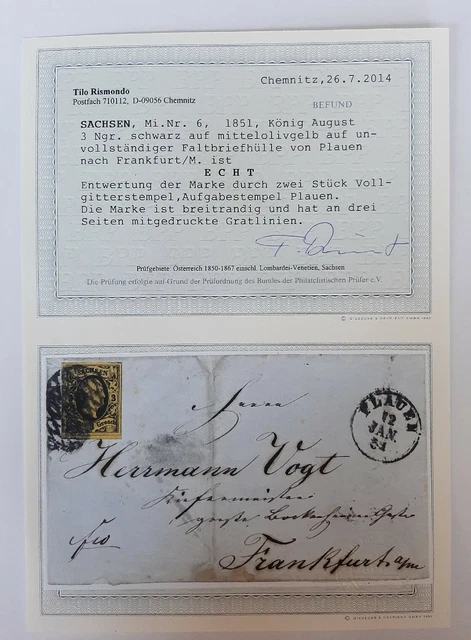 Tilo Rismondo
Postfach 710112, D-09056 Chemnitz
Chemnitz,26.7.2014
BEFUND
SACHSEN, Mi.Nr. 6, 1851, König August
3 Ngr. schwarz auf mittelolivgelb auf un-
vollständiger Faltbriefhülle von Plauen
nach Frankfurt/M. ist
E C H T
Entwertung der Marke durch zwei Stück Voll-
gitterstempel,Aufgabestempel Plauen.
Die Marke ist breitrandig und hat an drei
Seiten mitgedruckte Gratlinien.
Prüfgebiete: Österreich 1850-1867 einschl. Lombardei-Venetien, Sachsen
Die Prüfung erfolgte auf Grund der Prüfordnung des Bundes der Philatelistischen Prüfer e.V.
SACHSEN
3
Herrn
PLAUEN
12
JAN.
Herrmann Vogt
große Bockenheimer Gasse
fco
Frankfurt a/m